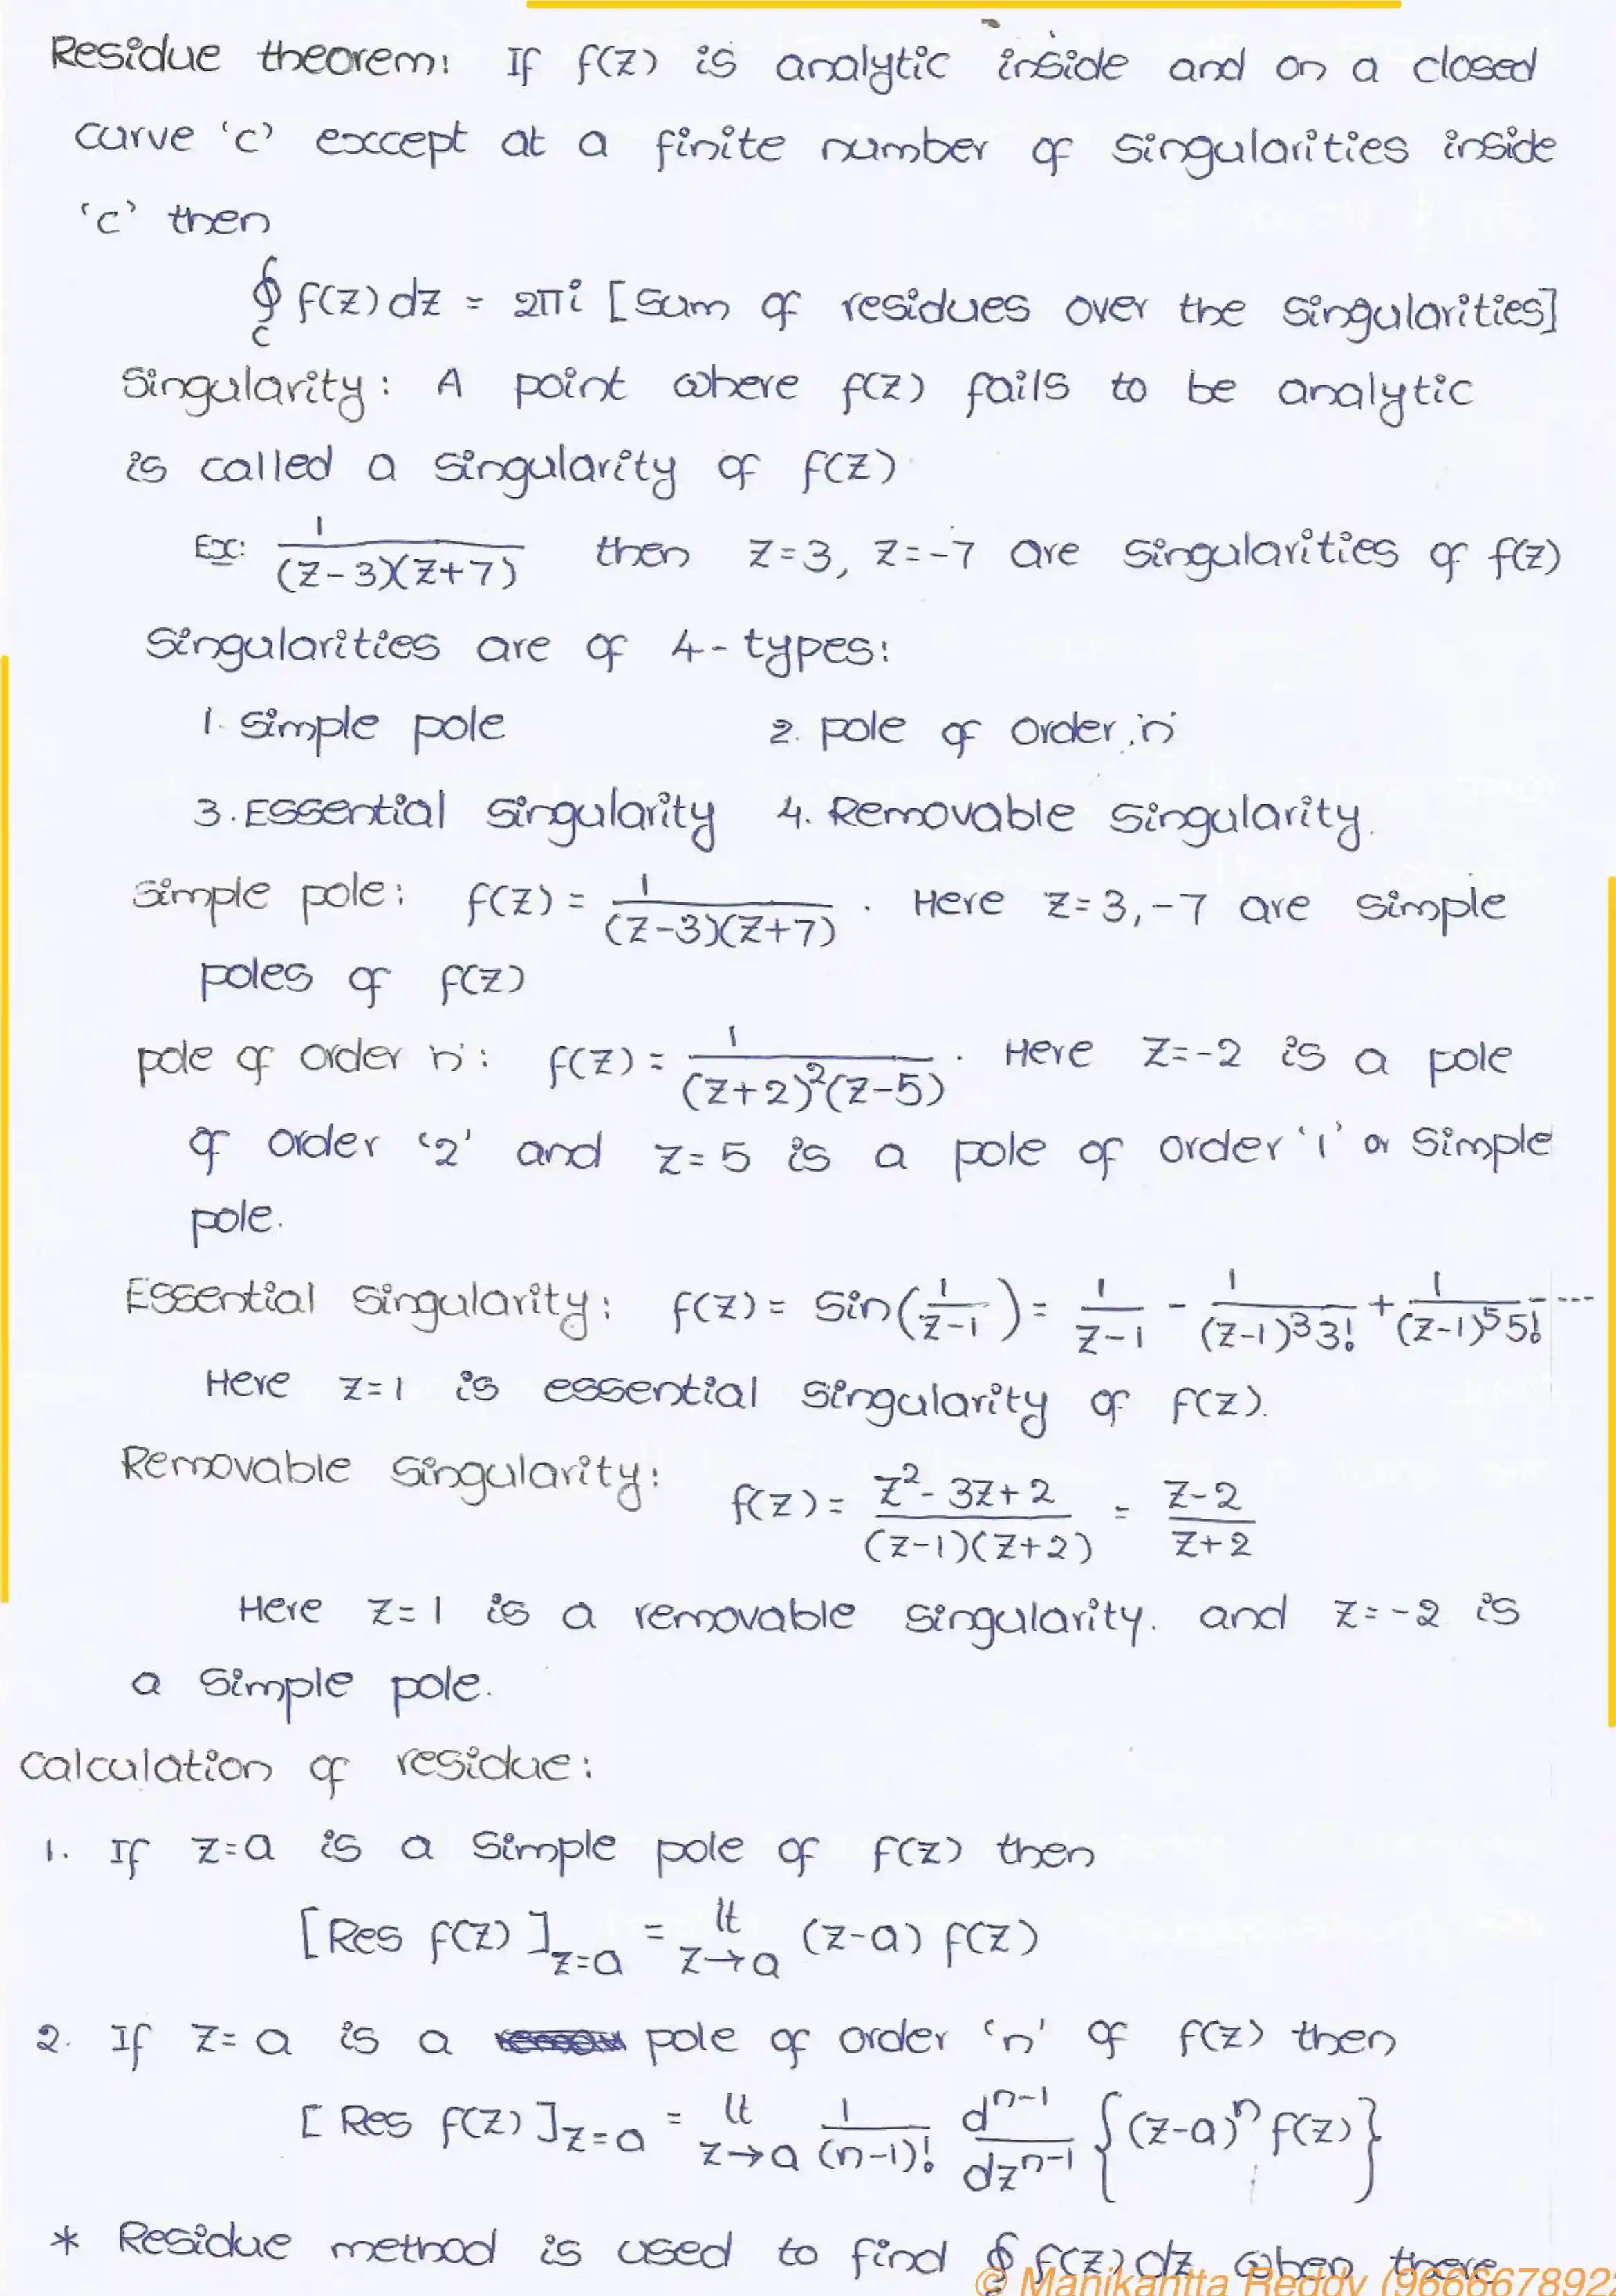 Residue theorem: If f(z) is analytic inside and on a closed
curve 'c' except at a finite number of singularities inside
'c' then
∮_c f(z)dz = 2πi [sum of residues over the singularities]
Singularity: A point where f(z) fails to be analytic
is called a singularity of f(z)
Ex: 1/((z-3)(z+7)) then z=3, z=-7 are singularities of f(z)
Singularities are of 4-types:
1. Simple pole 2. pole of order 'n'
3. Essential singularity 4. Removable singularity.
Simple pole: f(z) = 1/((z-3)(z+7)). Here z=3,-7 are simple
poles of f(z)
pole of order 'n': f(z) = 1/((z+2)²(z-5)). Here z=-2 is a pole
of order '2' and z=5 is a pole of order '1' or simple
pole.
Essential singularity: f(z) = sin(1/(z-1)) = 1/(z-1) - 1/((z-1)³3!) + 1/((z-1)⁵5!) ----
Here z=1 is essential singularity of f(z).
Removable singularity: f(z) = (z²-3z+2)/((z-1)(z+2)) = (z-2)/(z+2)
Here z=1 is a removable singularity. and z=-2 is
a simple pole.
Calculation of residue:
1. If z=a is a simple pole of f(z) then
[Res f(z)]_{z=a} = lt_{z→a} (z-a) f(z)
2. If z=a is a pole of order 'n' of f(z) then
[Res f(z)]_{z=a} = lt_{z→a} 1/(n-1)! d^{n-1}/dz^{n-1} {(z-a)^n f(z)}
* Residue method is used to find ∮ f(z)dz when there
© Manikantta Reddy (966667892